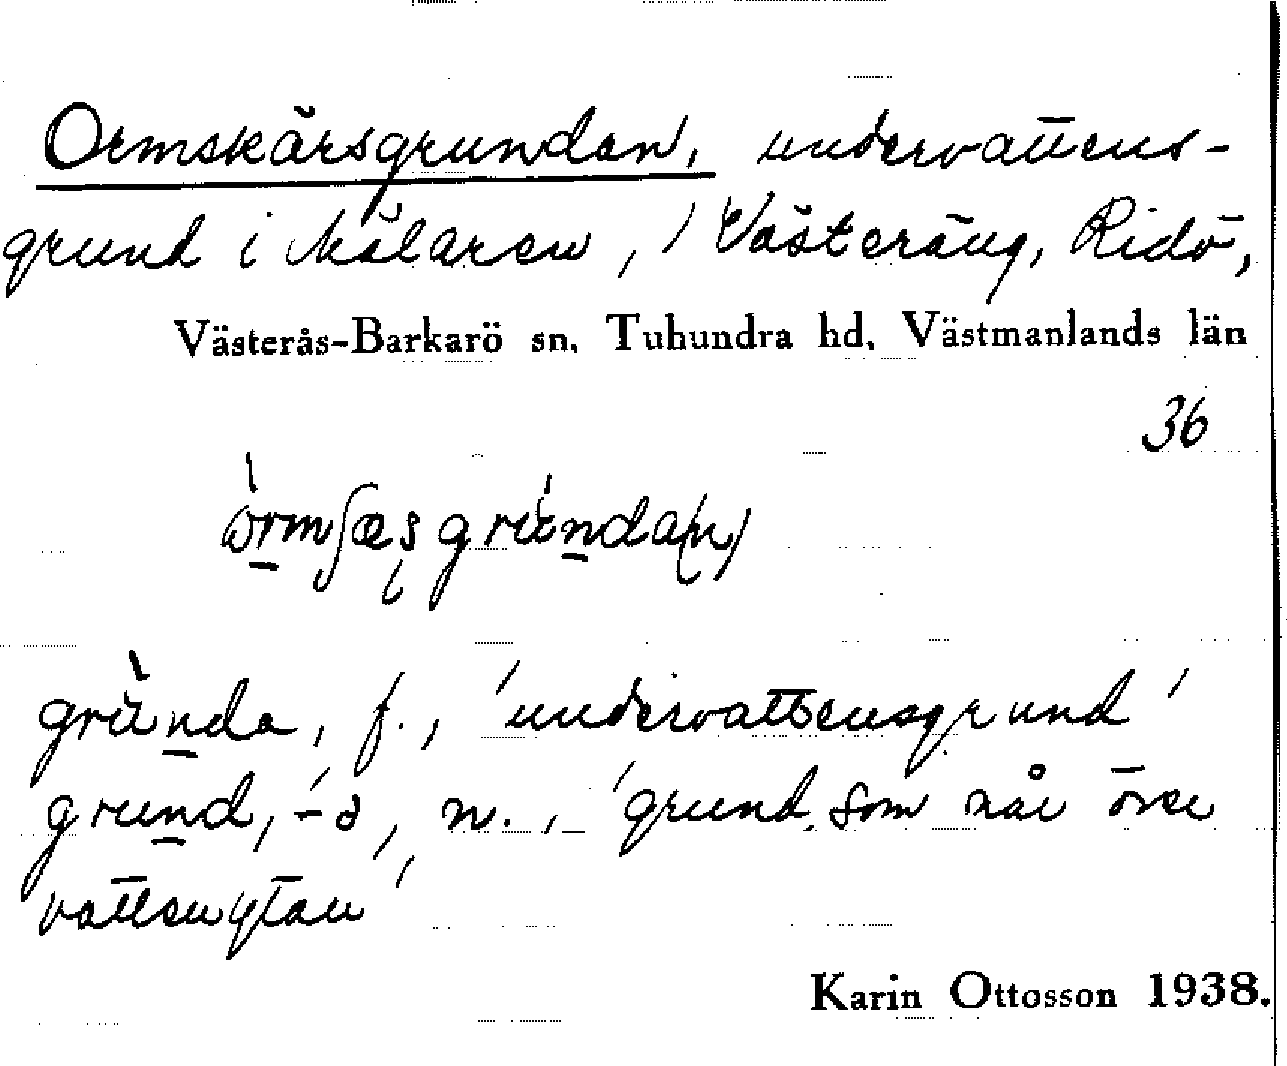 Ormskärsgrundan, undervattens-
grund i Mälaren, / Västeräng, Ridö,
Västerås-Barkarö sn. Tuhundra hd. Västmanlands län
36
grùnda, f., 'undervattensgrund'
grund, -ə, n., 'grund som når över
vattenytan'
Karin Ottosson 1938.